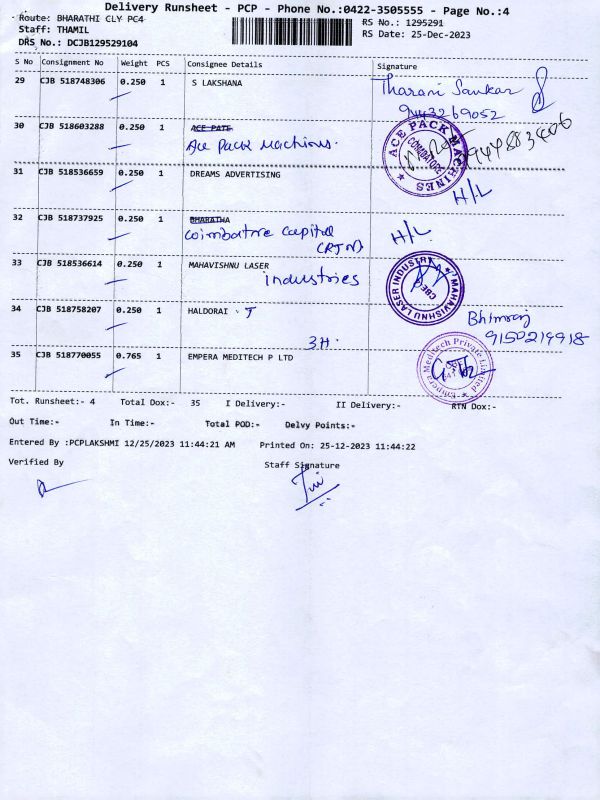 Delivery Runsheet - PCP - Phone No.:0422-3505555 - Page No.:4
Route: BHARATHI CLY PC4
RS No.: 1295291
Staff: THAMIL
RS Date: 25-Dec-2023
DRS No.: DCJB129529104
S No Consignment No Weight PCS Consignee Details Signature
29 CJB 518748306 0.250 1 S LAKSHANA Tharani Sankar
9443269052
30 CJB 518603288 0.250 1 ACE PATE
Ace Pack Machines.
ACE PACK MACHINES
COIMBATORE
31 CJB 518536659 0.250 1 DREAMS ADVERTISING
H/L
32 CJB 518737925 0.250 1 BHARATHA
Coimbatore Capital
(RJN)
H/L
33 CJB 518536614 0.250 1 MAHAVISHNU LASER
industries
MAHAVISHNU LASER INDUSTRIES
CBE
34 CJB 518758207 0.250 1 HALDORAI . T
Bhimraj
9150219918
3H.
35 CJB 518770055 0.765 1 EMPERA MEDITECH P LTD
Empera Meditech Private Limited
Tot. Runsheet:- 4 Total Dox:- 35 I Delivery:- II Delivery:- RTN Dox:-
Out Time:- In Time:- Total POD:- Delvy Points:-
Entered By :PCPLAKSHMI 12/25/2023 11:44:21 AM Printed On: 25-12-2023 11:44:22
Verified By Staff Signature